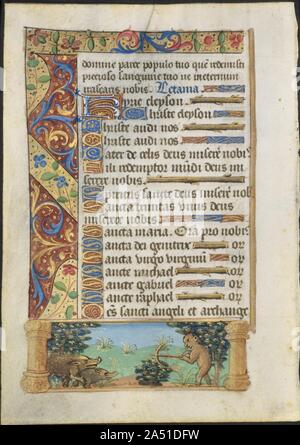 domine parce populo tuo quē redemisti
precioso sanguine tuo ne ineternum
irascaris nobis. Letania.
Kyrie eleyson.
Christe eleyson
Christe audi nos
Christe audi nos
Pater de celis deus miserē nobis
fili redemptor mūdi deus mi
serere nobis
Spiritus sancte deus miserē nob
Sancta trinitas unus deus
miserere nobis
Sancta maria. Ora pro nobis
Sancta dei genitrix or
Sancta virgo virginū or
Sancte michael or
Sancte gabriel or
Sancte raphael or
Oēs sancti angeli et archange
alamy
2A51DFW